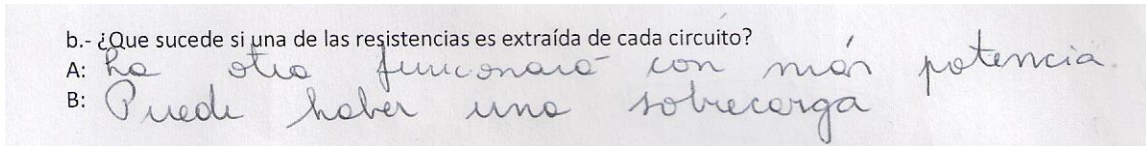 b.- ¿Que sucede si una de las resistencias es extraída de cada circuito?
A: La otra funcionará con más potencia.
B: Puede haber una sobrecarga